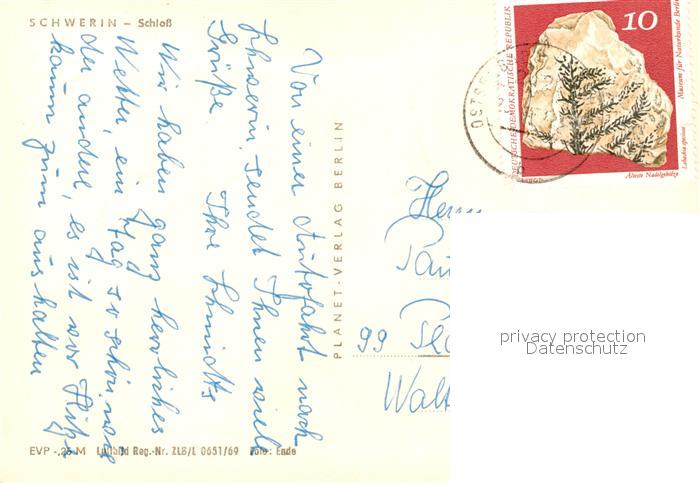 SCHWERIN – Schloß
Von einer Autofahrt nach
Schwerin, sendet Ihnen viele
Grüße Ihre Schmidts
Wir haben ganz herrliches
Wetter, ein Tag so schön wie
der andere, es ist vor Hitze
kaum zum aushalten
EVP -,25 M Luftbild Reg.-Nr. ZLB/L 0651/69 Foto: Ende
PLANET-VERLAG BERLIN
10
DEUTSCHE DEMOKRATISCHE REPUBLIK
Museum für Naturkunde Berlin
Lebachia speciosa
Älteste Nadelgehölze
Herrn
99
Walt
privacy protection
Datenschutz